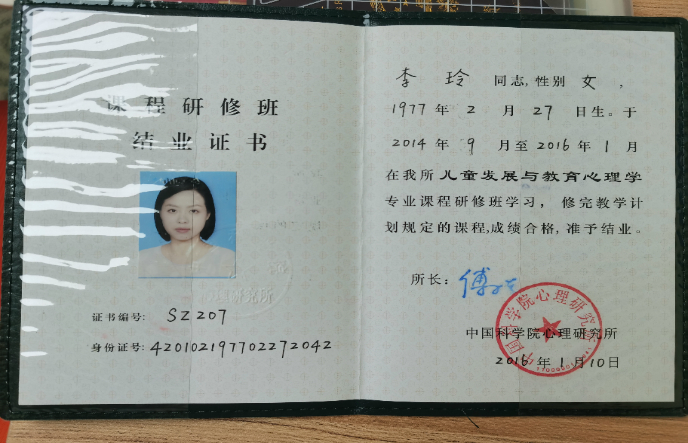 课程研修班
结业证书
研究所
证书编号: SZ207
身份证号: 420102197702272042
李玲 同志,性别 女,
1977 年 2 月 27 日生。于
2014 年 9 月至 2016 年 1 月
在我所儿童发展与教育心理学
专业课程研修班学习, 修完教学计
划规定的课程,成绩合格,准予结业。
所长:
中国科学院心理研究所
中国科学院心理研究所
2016 年 1 月 10 日